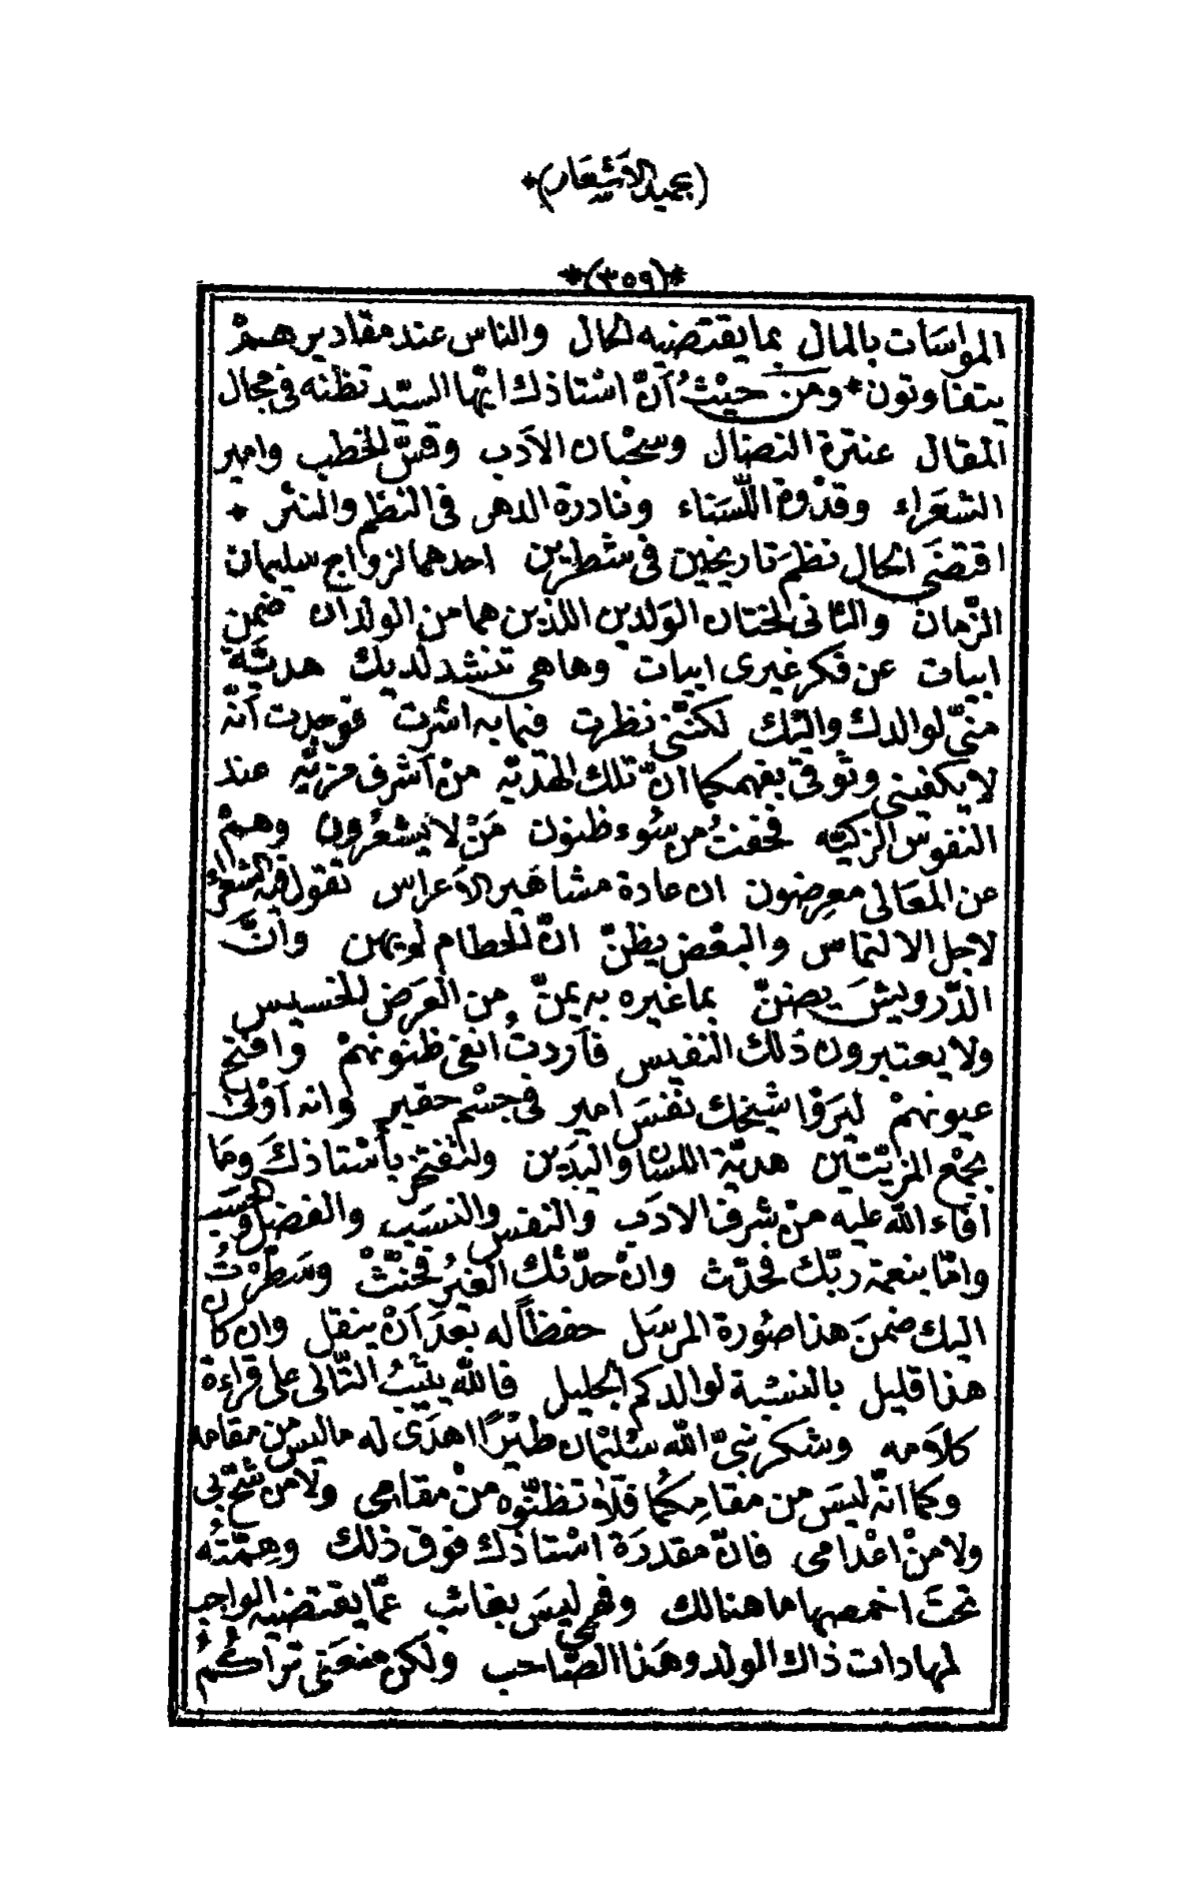 (بحميد الاَشْعَار)*
*(٣٥٩)*
المواسَات بالمال بما يقتضيه الحال والناس عند مقاديرهمْ
يتفاوتون * ومن حيْثُ اَنّ اسْتاذك ايّها السيّد تظنّه فى مجال
المقال عنترة النضال وسحْبان الاَدب وقسّ الخطب وامير
الشعَراء وقدْوة اللّسَناء ونادرة الدهر فى النظم والنثر *
اقتضَى الحال نظمَ تاريخين فى شطرين احدهما لزواج سليمان
الزّمان والثانى لختان الوَلدين اللذين هما من الولدان ضمن
ابيات عن فكر غيرى ابيات وها هى تنشد لديك هديّة
منّى لوالدك واليْك لكنّنى نظرت فيما به اشرت فوجدت اَنّه
لا يكفينى وثوقى بفهمكما انّ تلك الهَديّه منْ اَشرف مزيّه عند
النفوس الزكيّه فخفتُ من سُوء ظنون مَنْ لا يشعُرون وهمْ
عن المعَالى معرضون ان عادة مشاهَير الاَعراس تقول فيه الشعراءُ
لاجل الالتماس والبعْض يظنّ انّ الحطام لو يهن وانَّ
الدّرويشَ يضننّ بما غيره به يمنّ ومن العَرَض الخسيس
ولا يعتبرون ذٰلك النفيس فاَردتُ انفى ظنونهمْ وافتح
عيونهمْ ليرَوْا شيخك نفسَ امير فى جسْم حقير وانه اَوْلى
بجمْع المزيّتيْن هديّة اللسان واليَدين ولتفتخر بأسْتاذكَ وَما
افاء اللّه عليه منْ شرف الادَب والنفس والنسَب والفضل والحسَب
وامّا بنعمة ربّك فحَدّث وانْ حدّثك الغيْرُ فحنّثْ وسَطّرْتُ
اليك ضمنَ هذا صُورة المرسَل حفظاً له بعدَ اَنْ ينقل وان كان
هذا قليل بالنسْبة لوالدكم الجليل فاللّه يثيبُ التّالى على قراءة
كلاَمه وشكر نبىّ اللّه سُليْمان طيْرًا اهدَى له ما ليس من مقامه
وكما انّه ليسَ من مقامِكُما فلاَ تظنّوه منْ مقامى ولا من شحّ بى
ولا منْ اعْدامى فانّ مقدرَة اسْتاذك فوق ذلك وهِمّتُه
تحتَ اخمصها ما هنالك وفهمى ليسَ بغائب عمّا يقتضيه الواجب
لمهادات ذاك الولد وهَذا الصّاحب ولكن منعَنى تراكُمُ